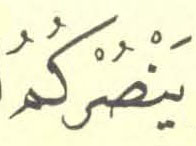 يَنْصُرْكُمُ